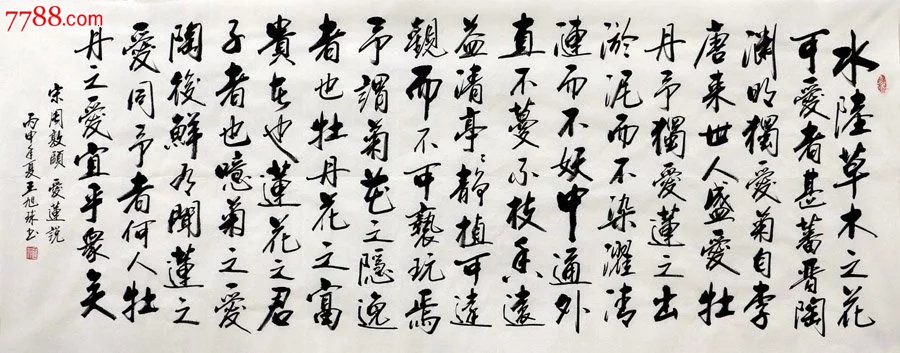 7788.com
水陸草木之花
可愛者甚蕃晋陶
渊明獨愛菊自李
唐来世人盛愛牡
丹予獨愛蓮之出
淤泥而不染濯清
漣而不妖中通外
直不蔓不枝香遠
益清亭〻静植可遠
觀而不可褻玩焉
予謂菊花之隐逸
者也牡丹花之富
貴者也蓮花之君
子者也噫菊之愛
陶後鮮有聞蓮之
愛同予者何人牡
丹之愛宜乎衆矣
宋周敦頤 愛蓮説
丙申年夏王旭珠书